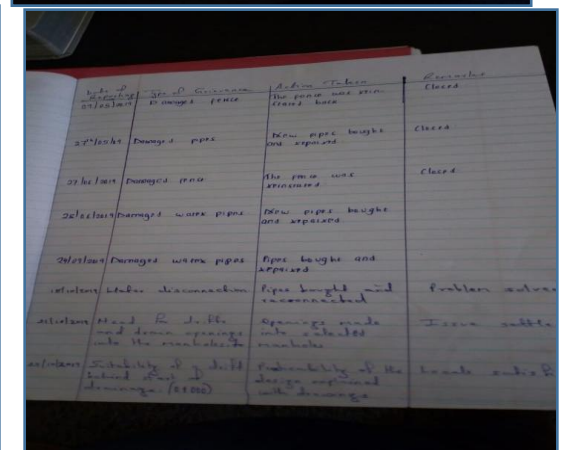 Date of Reporting Type of Grievance Action Taken Remarks
Damaged fence The fence was rein-
stated back Closed
27th/05/19 Damaged pipes New pipes bought
and repaired Closed
27/06/2019 Damaged fence The fence was
reinstated Closed
28/06/2019 Damaged water pipes New pipes bought
and repaired
29/07/2019 Damaged water pipes Pipes bought and
repaired
Water disconnection Pipes bought and
reconnected Problem solved
Need for
and drain openings
into the manholes Openings made
into selected
manholes Issue settle
Suitability of
behind
drainage Practicability of the
design explained
with drawings